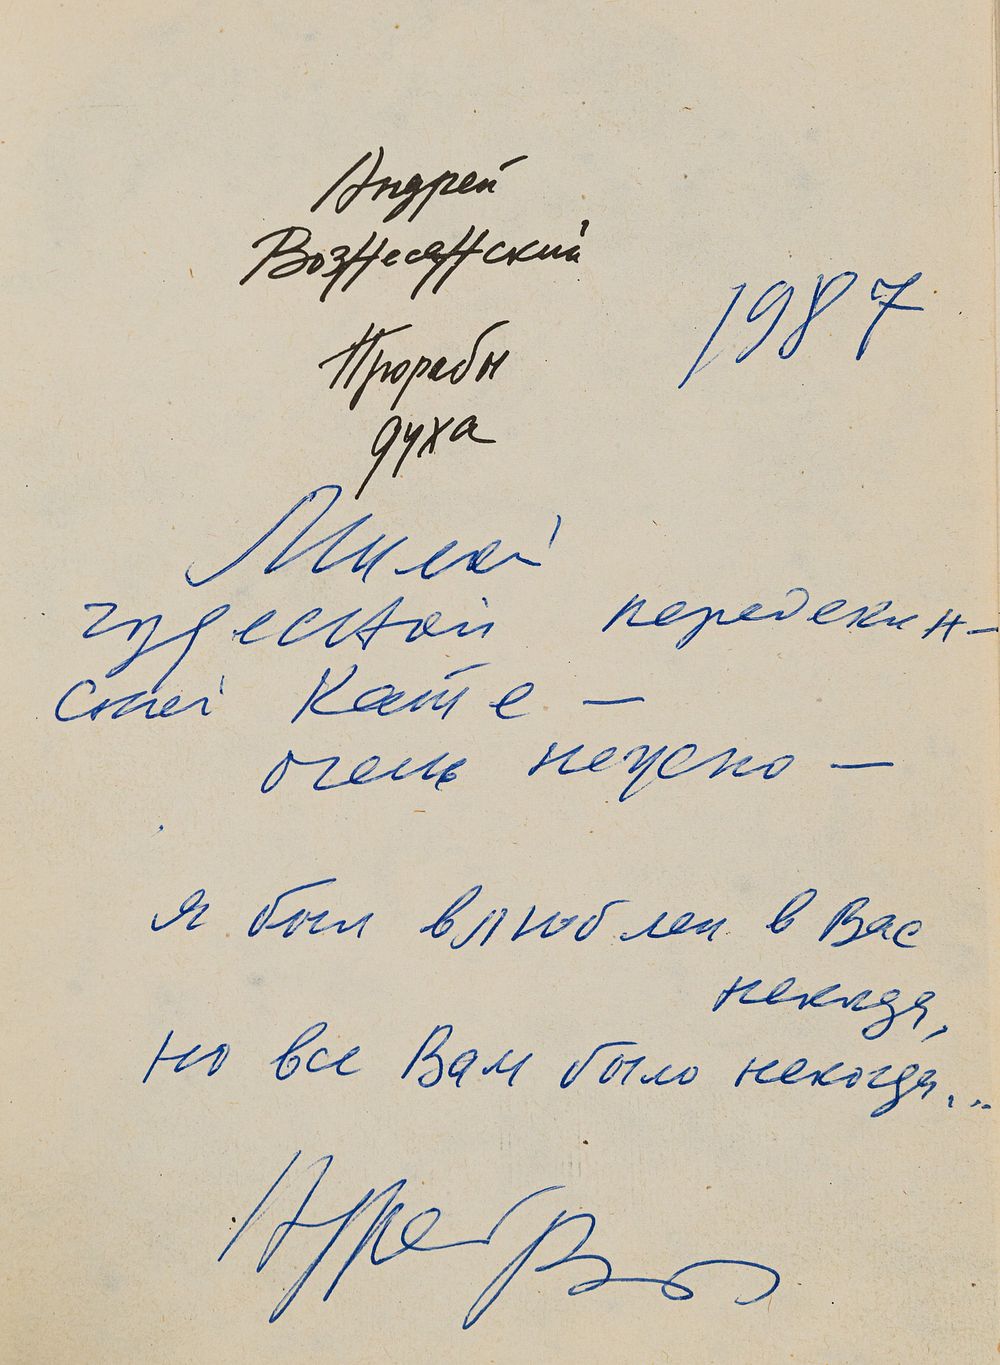 Андрей
Вознесенский
1987
Прорабы
духа
Милой
чудесной переделкин-
ской Кате —
очень нежно —
я был влюблен в Вас
некогда,
но все Вам было некогда...
Андрей Воз